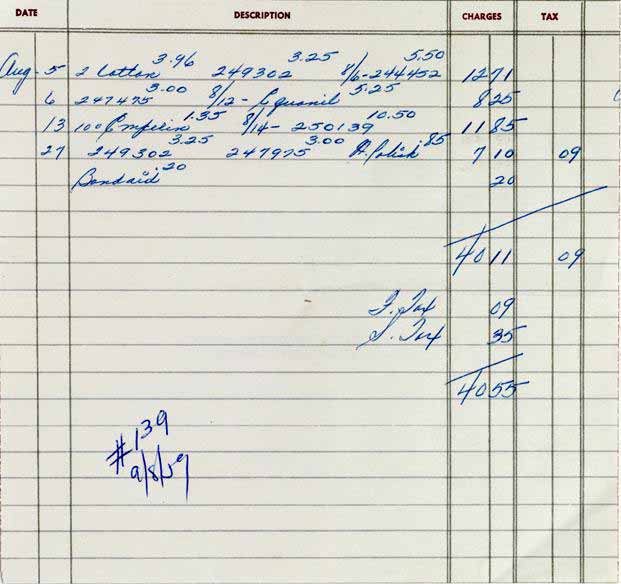 DATE DESCRIPTION CHARGES TAX
3.96 3.25 5.50
Aug. 5 2 Cotton 249302 8/6-244452 12 71
3.00 5.25
6 247475 8/12- Equanil 8 25
1.35 10.50
13 100 Empirin 8/14- 250139 11 85
3.25 3.00 .85
27 249302 247975 N. Polish 7 10 09
.20
Bandaid 20
40 11 09
F. Tax 09
S. Tax 35
40 55
#139
9/8/59